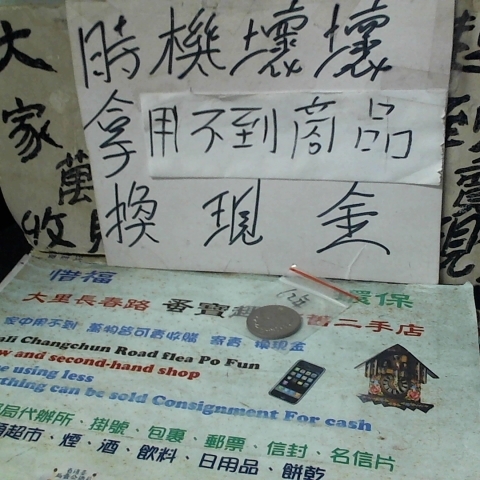 時機壞壞
拿用不到商品
換現金
大
家
萬
收
到
賣
現
惜福
環保
大里長春路 番寶超 舊二手店
家中用不到 萬物皆可收購 寄賣 換現金
ali Changchun Road flea Po Fun
w and second-hand shop
e using less
thing can be sold Consignment For cash
局代辦所、掛號、包裹、郵票、信封、名信片
超市、煙、酒、飲料、日用品、餅乾